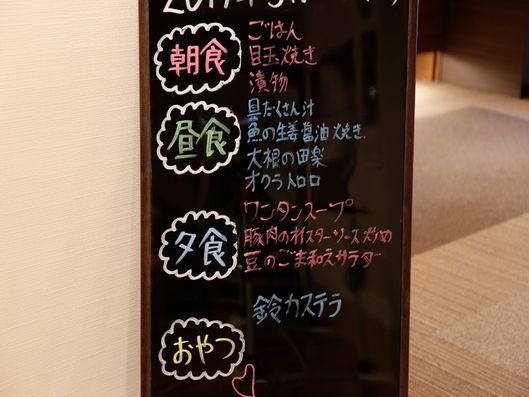 朝食
ごはん
目玉焼き
漬物
昼食
具だくさん汁
魚の生姜醤油焼き
大根の田楽
オクラトロロ
夕食
ワンタンスープ
豚肉のオイスターソース炒め
豆のごま和えサラダ
鈴カステラ
おやつ